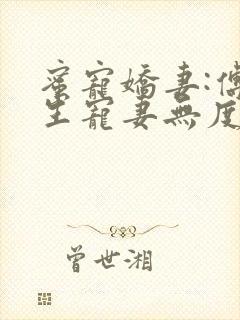 蜜寵嬌妻:傅
生寵妻無度
曾世湘